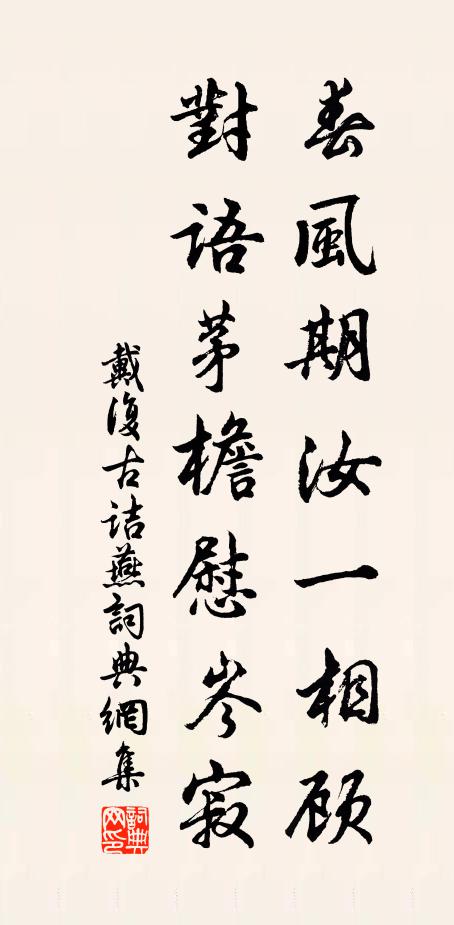 春風期汝一相顾
對語茅檐慰岑寂
戴復古詰燕詞典網集
詞典網印